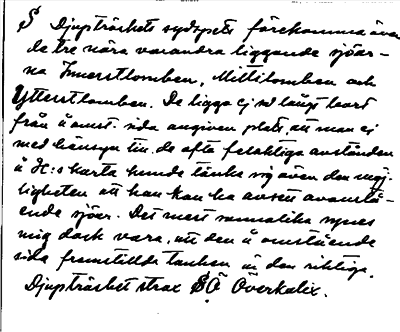 § Djupträskets sydspets förekomma även
de tre nära varandra liggande sjöar-
na Innerstlomben, Mittilomben och
Ytterstlomben. De ligga ej så långt bort
från å omst. sida angiven plats, att man ej
med hänsyn till de ofta felaktiga avstånden
å H:s karta kunde tänka sig även den möj-
ligheten att han kan ha avsett ovanstå-
ende sjöar. Det mest sannolika synes
mig dock vara, att den å omstående
sida framställda tanken är den riktiga.
Djupträsket strax SÖ Överkalix.